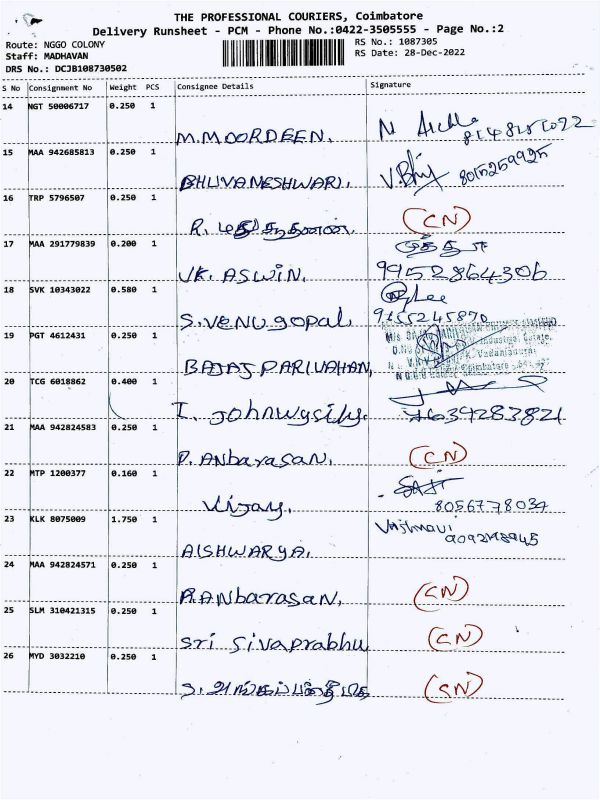 THE PROFESSIONAL COURIERS, Coimbatore
Delivery Runsheet - PCM - Phone No.:0422-3505555 - Page No.:2
Route: NGGO COLONY
RS No.: 1087305
Staff: MADHAVAN
RS Date: 28-Dec-2022
DRS No.: DCJB108730502
S No Consignment No Weight PCS Consignee Details Signature
14 NGT 50006717 0.250 1
M.MOORDEEN.
15 MAA 942685813 0.250 1
BHUVANESHWARI. V.Bhij 8015259925
16 TRP 5796507 0.250 1
R. (CN)
17 MAA 291779839 0.200 1
VK. ASWIN. 9952864306
18 SVK 10343022 0.580 1
S.VENUgopal 9155245870
19 PGT 4612431 0.250 1
BAJAJ PARIVAHAN,
20 TCG 6018862 0.400 1
I. 7639283821
21 MAA 942824583 0.250 1
P. ANbarasan, (CN)
22 MTP 1200377 0.160 1
Vijay. 8056778037
23 KLK 8075009 1.750 1
AISHWARYA.
24 MAA 942824571 0.250 1
P.ANbarasan, (CN)
25 SLM 310421315 0.250 1
Sri Sivaprabhu (CN)
26 MYD 3032210 0.250 1
S. (CN)